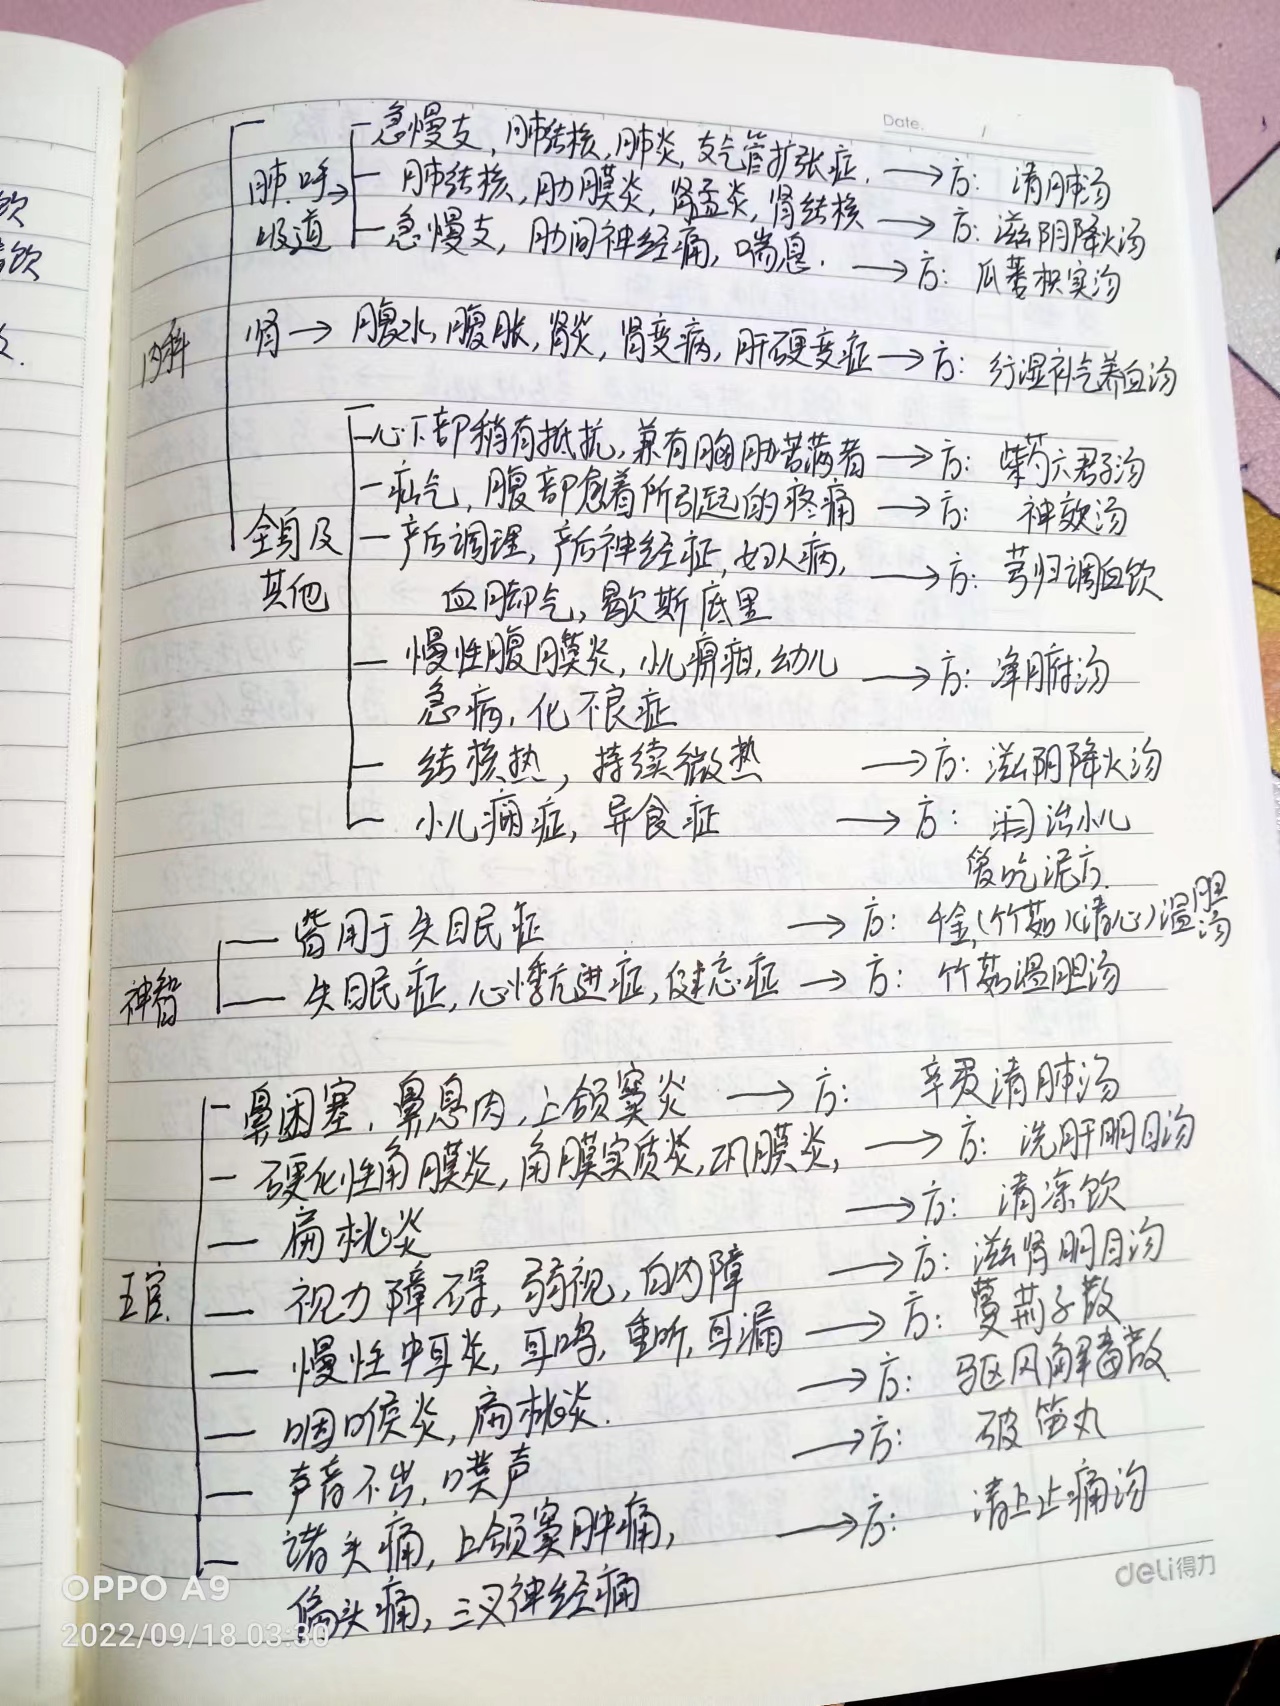 Date. /
急慢支, 肺结核, 肺炎, 支气管扩张症. → 方: 清肺汤
肺.呼吸道 → 肺结核, 肋膜炎, 肾盂炎, 肾结核 → 方: 滋阴降火汤
急慢支, 肋间神经痛, 喘息. → 方: 瓜蒌枳实汤
内科
肾 → 腹水, 腹胀, 肾炎, 肾变病, 肝硬变症 → 方: 行湿补气养血汤
心下部稍有抵抗, 兼有胸肋苦满者 → 方: 柴芍六君子汤
疝气, 腹部愈着所引起的疼痛 → 方: 神效汤
全身及其他
产后调理, 产后神经症, 妇人病, → 方: 芎归调血饮
血脚气, 歇斯底里
慢性腹膜炎, 小儿痹疳, 幼儿 → 方: 净腑汤
急病, 化不良症
结核热, 持续微热 → 方: 滋阴降火汤
小儿痫症, 异食症 → 方: 治小儿
爱吃泥方.
皆用于失眠症 → 方: 千金(竹茹)(清心)温胆汤
神智
失眠症, 心悸亢进症, 健忘症 → 方: 竹茹温胆汤
鼻困塞, 鼻息肉, 上颌窦炎 → 方: 辛夷清肺汤
硬化性角膜炎, 角膜实质炎, 巩膜炎, → 方: 洗肝明目汤
扁桃炎 → 方: 清凉饮
五官.
视力障碍, 弱视, 白内障 → 方: 滋肾明目汤
慢性中耳炎, 耳鸣, 重听, 耳漏 → 方: 蔓荆子散
咽喉炎, 扁桃炎. → 方: 驱风解毒散
声音不出, 嘆声 → 方: 破笛丸
诸头痛, 上颌窦肿痛, → 方: 清上止痛汤
偏头痛, 三叉神经痛
deli得力
OPPO A9
2022/09/18 03:30